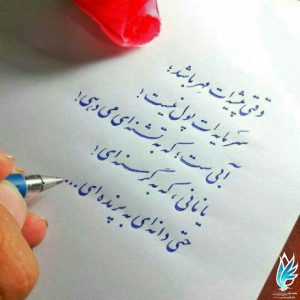 وقتی پیشه‌ات مهر باشد؛
سرمایه‌ات پول نیست!
آبی ست، که به تشنه‌ای می‌دهی!
یا نانی، که به گرسنه‌ای!
حتی دانه‌ای به پرنده‌ای...